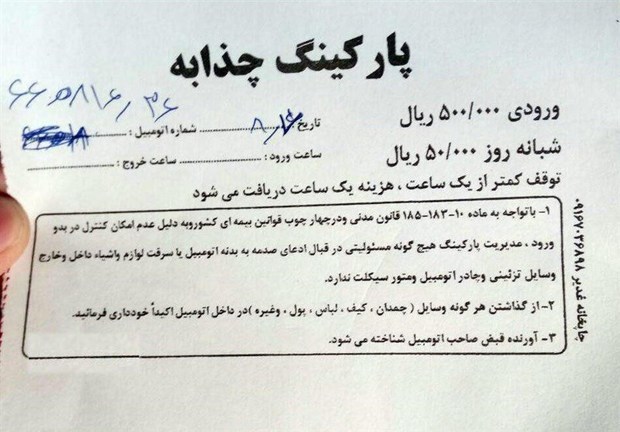 پارکینگ چذابه
ورودی ۵۰۰/۰۰۰ ریال
شبانه روز ۵۰/۰۰۰ ریال
تاریخ ۸/۱۶ شماره اتومبیل :
ساعت ورود : ساعت خروج :
توقف کمتر از یک ساعت ، هزینه یک ساعت دریافت می شود
۱- باتواجه به ماده ۱۰-۱۸۳-۱۸۵ قانون مدنی ودرچهار چوب قوانین بیمه ای کشوروبه دلیل عدم امکان کنترل در بدو
ورود ، مدیریت پارکینگ هیچ گونه مسئولیتی در قبال ادعای صدمه به بدنه اتومبیل یا سرقت لوازم واشیاء داخل وخارج
وسایل تزئینی وچادر اتومبیل ومتور سیکلت ندارد.
۲- از گذاشتن هر گونه وسایل ( چمدان ، کیف ، لباس ، پول ، وغیره )در داخل اتومبیل اکیداً خودداری فرمائید.
۳- آورنده قبض صاحب اتومبیل شناخته می شود.
چاپخانه غدیر ۰۹۱۶۷۰۳۶۸۹۸